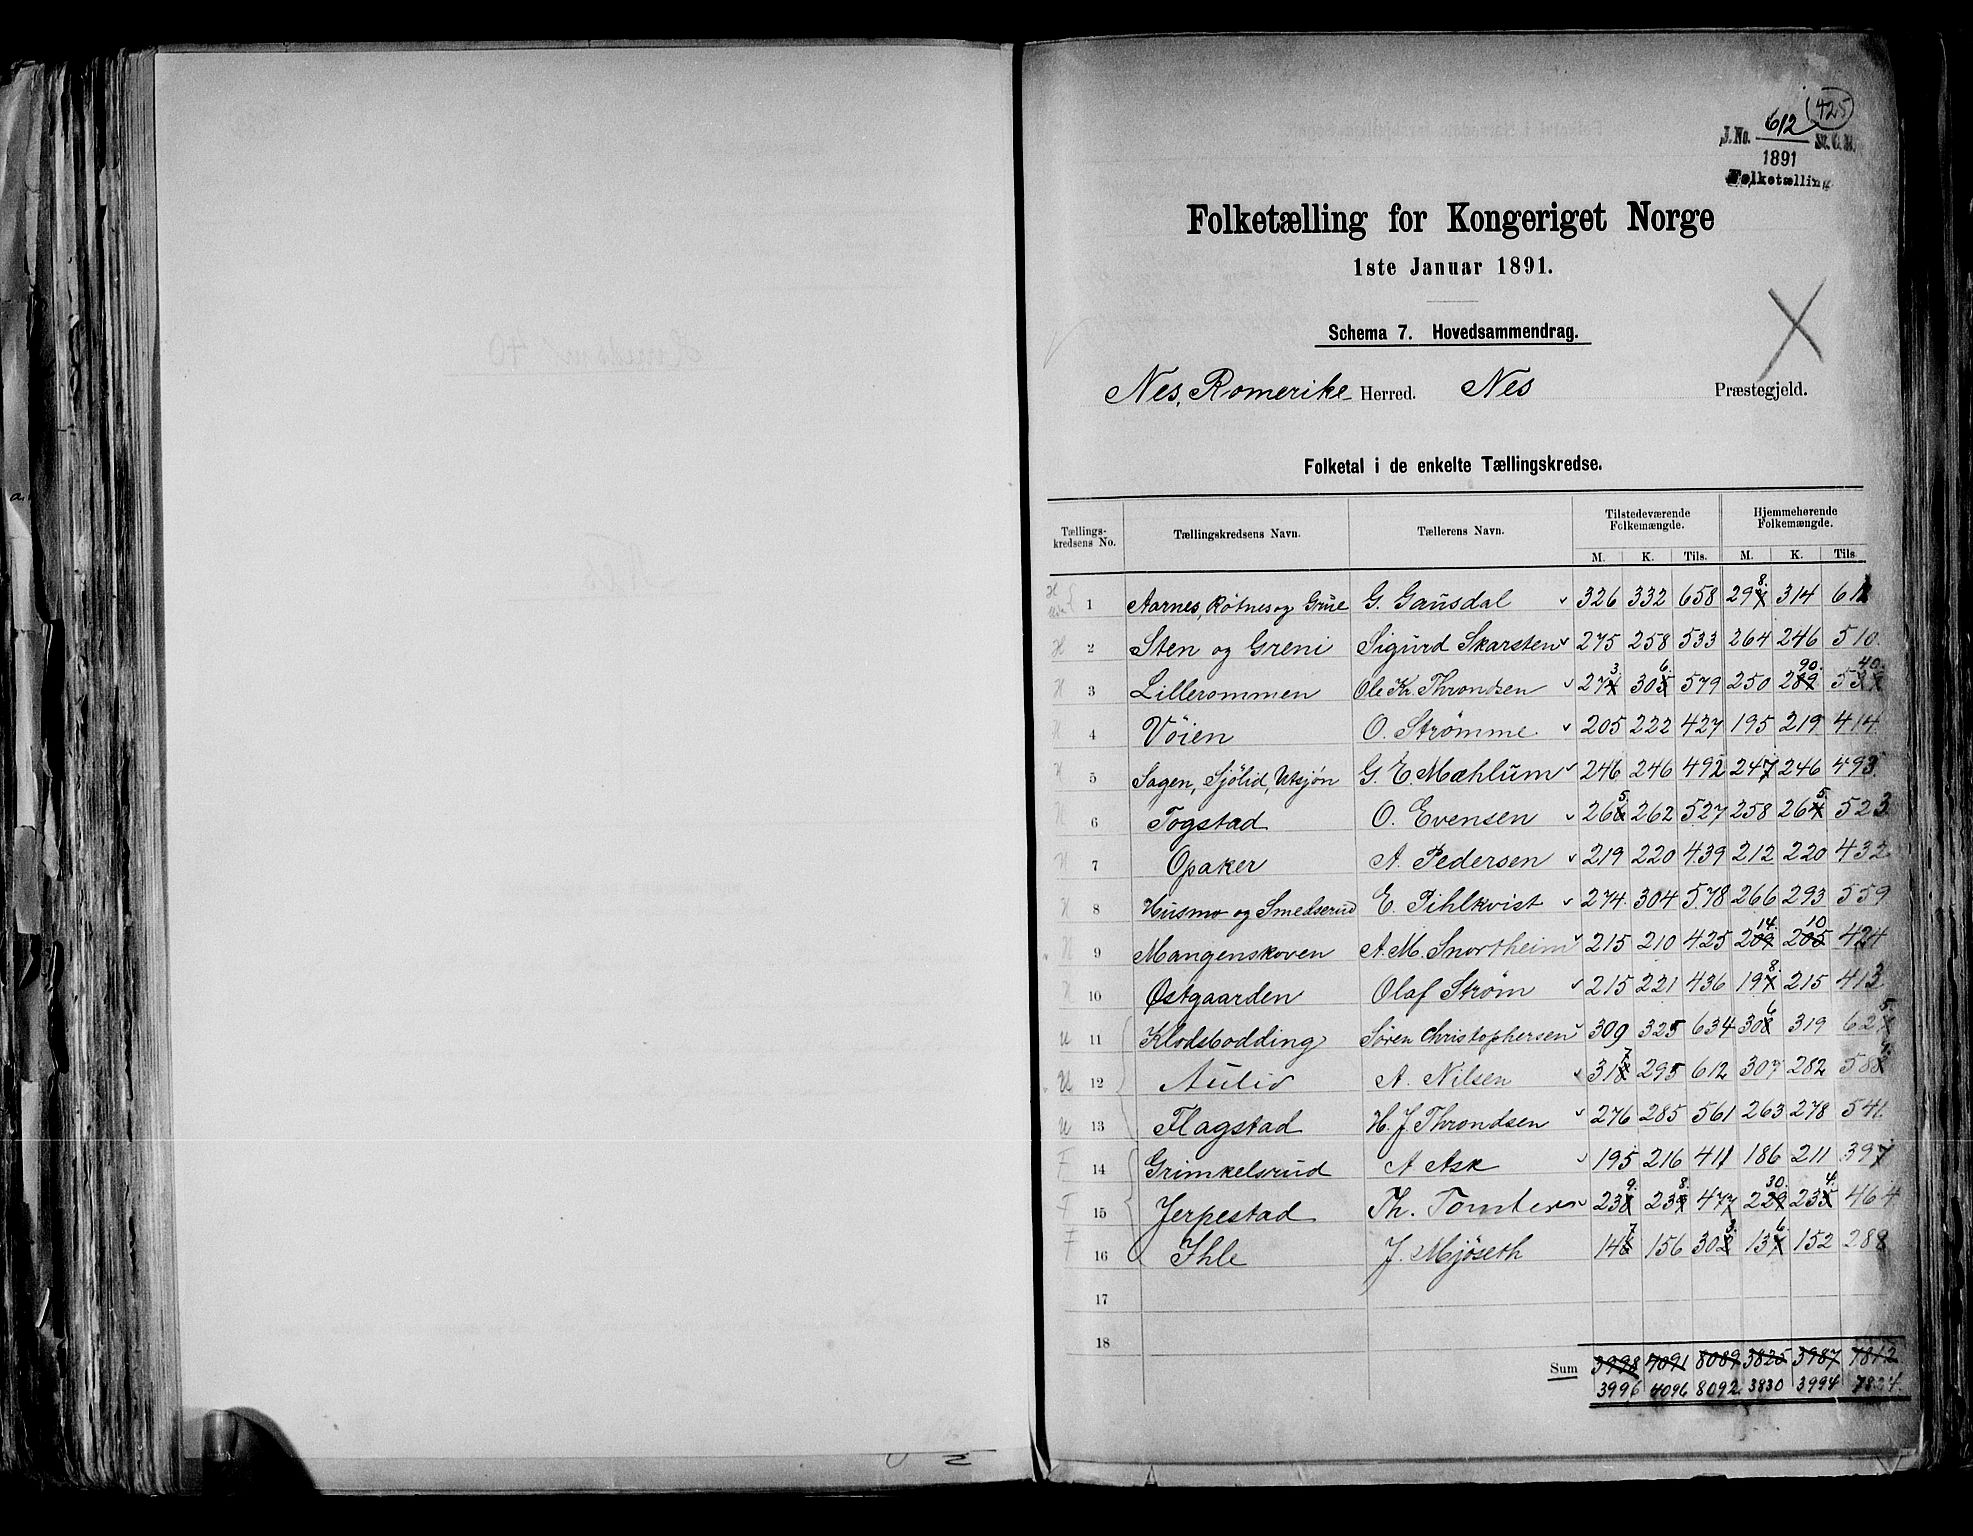 425
J. No. 612 St. C. B.
1891
Folketælling
Folketælling for Kongeriget Norge
1ste Januar 1891.
Schema 7. Hovedsammendrag.
Nes, Romerike Herred. Nes Præstegjeld.
Folketal i de enkelte Tællingskredse.
Tællings-kredsens No. Tællingskredsens Navn. Tællerens Navn. Tilstedeværende Folkemængde. Hjemmehørende Folkemængde.
M. K. Tils. M. K. Tils.
1 Aarnes, Rötnes og Grue G. Gausdal 326 332 658 298 314 612
H 2 Sten og Greni Sigurd Skarsten 275 258 533 264 246 510
H 3 Lillerommen Ole Kr Throndsen 273 306 579 250 290 540
H 4 Vöien O. Strömme 205 222 427 195 219 414
H 5 Sagen, Sjölid, Utsjön G. E. Mæhlum 246 246 492 247 246 493
H 6 Togstad O. Evensen 265 262 527 258 265 523
H 7 Opaker A. Pedersen 219 220 439 212 220 432
H 8 Husmo og Smedserud E. Pihlkvist 274 304 578 266 293 559
H 9 Mangenskoven A. M. Snortheim 215 210 425 214 210 424
H 10 Østgaarden Olaf Strøm 215 221 436 198 215 413
U 11 Klodsbodding Søren Christophersen 309 325 634 306 319 625
U 12 Aulid A. Nilsen 317 295 612 307 282 589
U 13 Flagstad H. J Throndsen 276 285 561 263 278 541
F 14 Grimkelsrud A Ask 195 216 411 186 211 397
F 15 Jerpestad Th. Tomter 239 238 477 230 234 464
F 16 Ihle J. Mjöseth 147 156 303 136 152 288
17
18
Sum 3998 4091 8089 3825 3987 7812
3996 4096 8092 3830 3994 7824